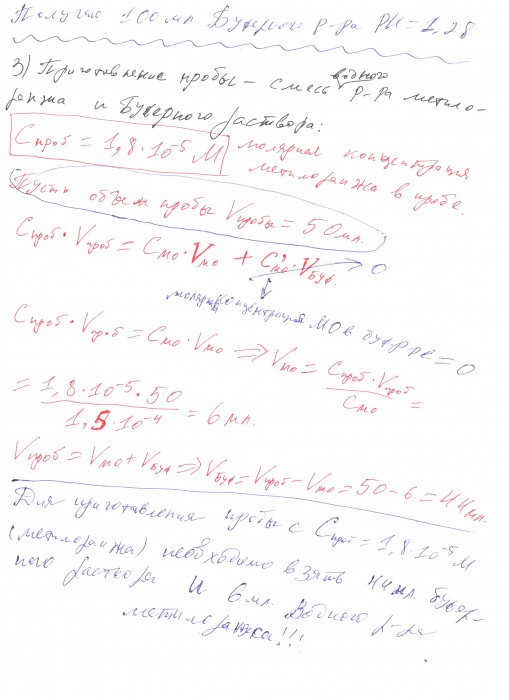 Получию 100 мл Буферного р-ра PH = 1,28
3) Приготовление пробы – смесь водного р-ра метило-
ранжа и Буферного раствора:
Cпроб = 1,8·10⁻⁵ M молярная концентрация
метилоранжа в пробе.
Пусть объем пробы Vпробы = 50 мл.
Cпроб·Vпроб = Cмо·Vмо + C'мо·Vбуф. → 0
молярная концентрация МО в буфере = 0
Cпроб·Vпроб = Cмо·Vмо ⇒ Vмо = Cпроб·Vпроб / Cмо =
= 1,8·10⁻⁵·50 / 1,5·10⁻⁴ = 6 мл.
Vпроб = Vмо + Vбуф ⇒ Vбуф = Vпроб – Vмо = 50 – 6 = 44 мл.
Для приготавления пробы с Cпроб = 1,8·10⁻⁵ M
(метилоранжа) необходимо взять 44 мл. буфер-
ного раствора и 6 мл. водного р-ра
метилоранжа!!!